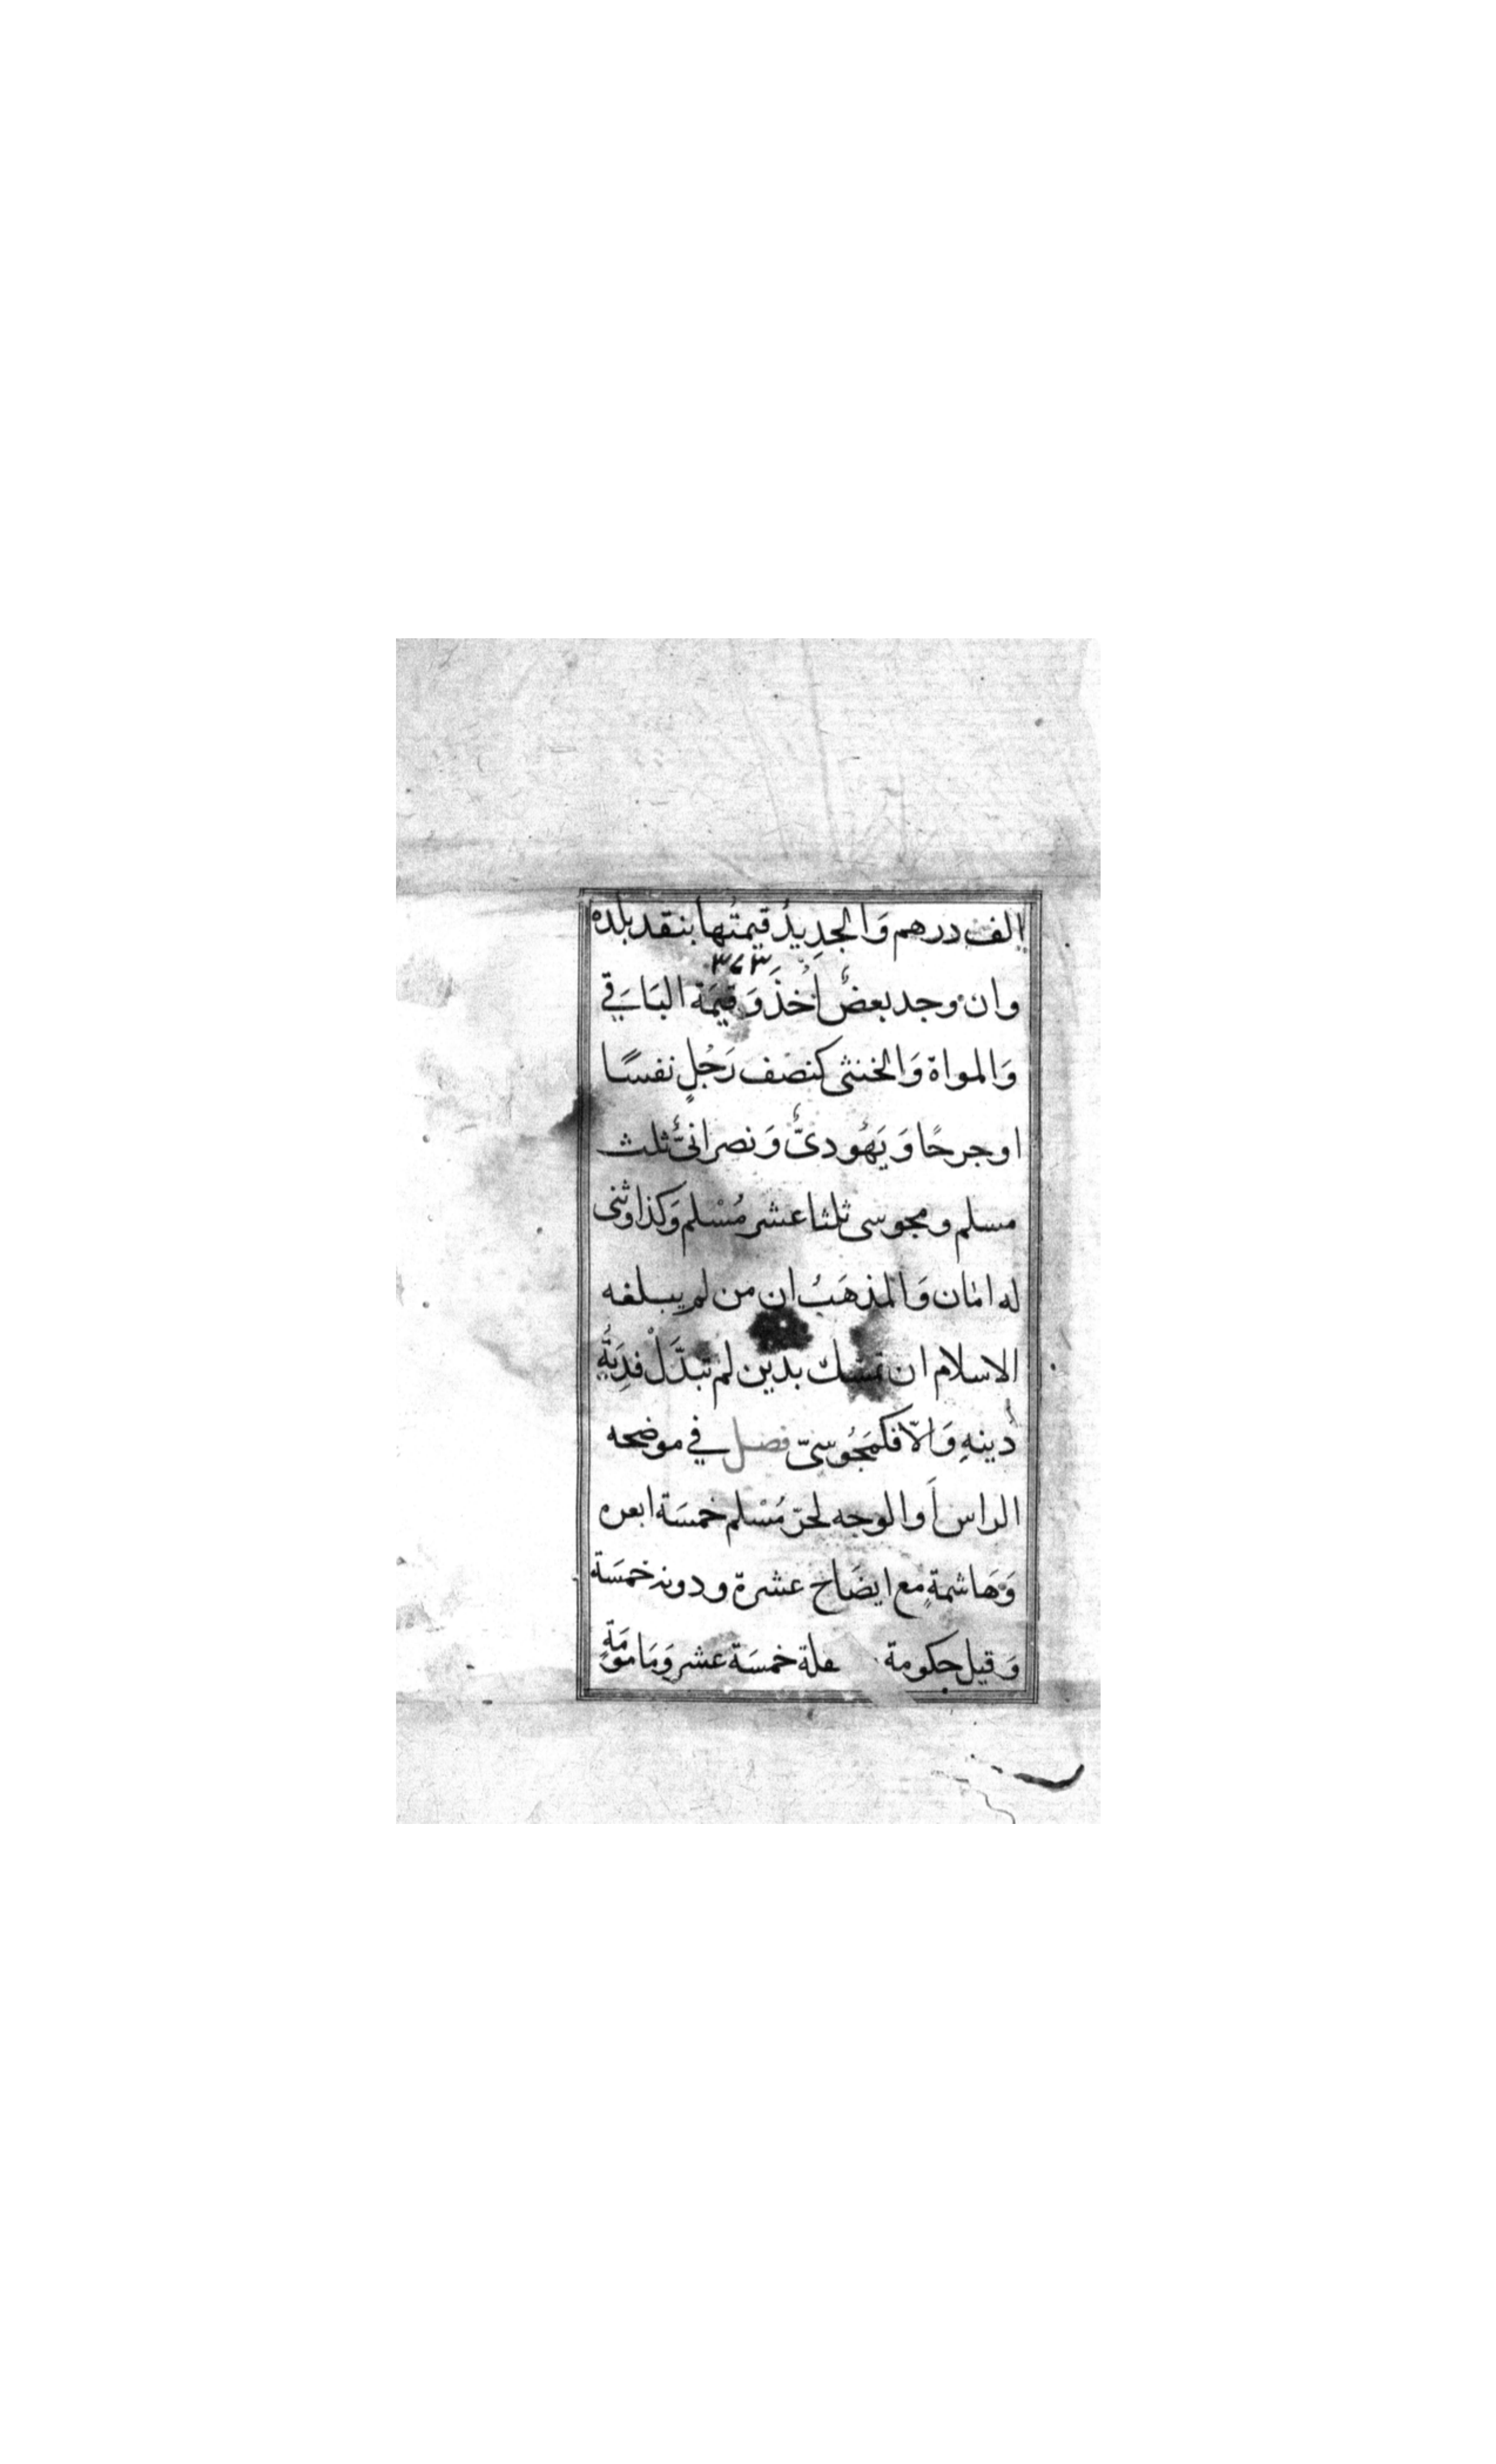 الف درهم وَالجدِيدُ قيمتُها بنقد بلده
٣٧٣
وان وجد بعضٌ اُخذَ وَقيمَة البَاقي
وَالمراة وَالخنثى كنصْف رَجُلٍ نفسًا
اوجرحًا وَيَهُودىٌّ وَنصرانىٌّ ثلث
مسلم ومجوسى ثلثا عشر مُسْلم وَكذا وثنى
له امَان وَالمذهَبُ ان من لم يبلغه
الاسلام ان تمسك بدين لم تبدَّلْ فدِيَةُ
دينهِ وَالّا فكمَجُوسىّ فصل في موضحه
الراس اَوالوجه لحرّ مُسْلم خمسَة ابعره
وَهَاشمةٍ مع ايضَاح عشرة ودونه خمسَة
وَقيل حكومة قلة خمسَة عشر وَمَامومَةٍ